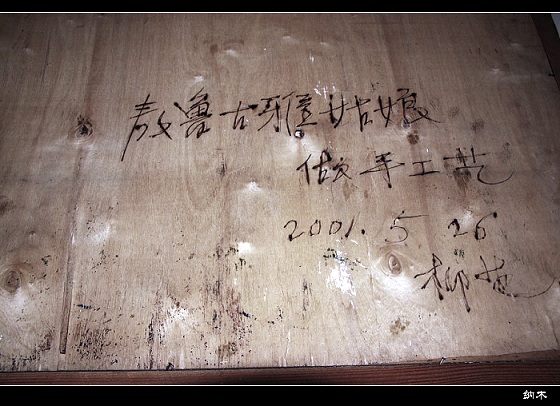 敖鲁古雅姑娘
做手工艺
2001.5 26
柳芭
纳木